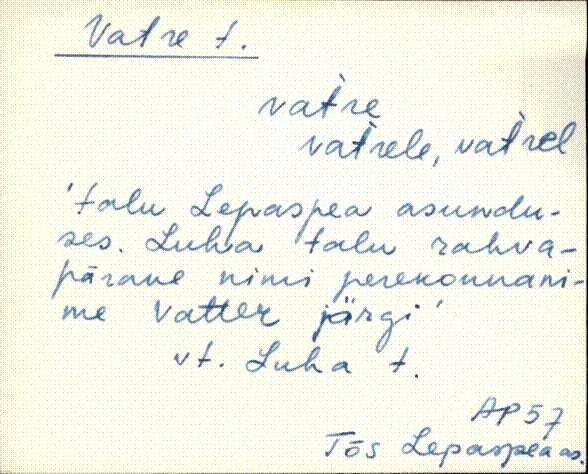 Vatre t.
vat̀re
vat̀rele, vat̀rel
'talu Lepaspea asundu-
ses. Luha talu rahva-
pärane nimi perekonnani-
me Vatter järgi'
vt. Luha t.
AP57
Tõs Lepaspea as.